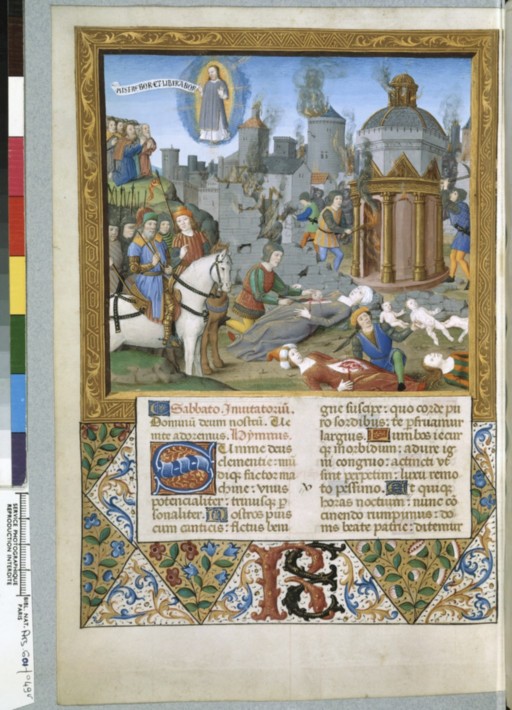 Sabbato. Invitatoriũ.
Dominũ deum nostrũ. Ue
nite adoremus. Hymnus.
Summe deus
clementie : mũ
diq; factor ma
chine : Vnus
potencialiter : trinusq; p
sonaliter. Nostros pius
cum canticis : fletus beni
gne suscipe : quo corde pu
ro sordibus : te pfruamur
largius. Lumbos iecur
q; morbidum : adure ig
ni congruo : accincti vt
sint perpetim : luxu remo
to pessimo. Ut quiq;
horas noctium : nunc cõ
cinendo rumpimus : do
nis beate patrie : ditemur
SERVICE PHOTOGRAPHIQUE
REPRODUCTION INTERDITE
BIBL. NAT.
PARIS